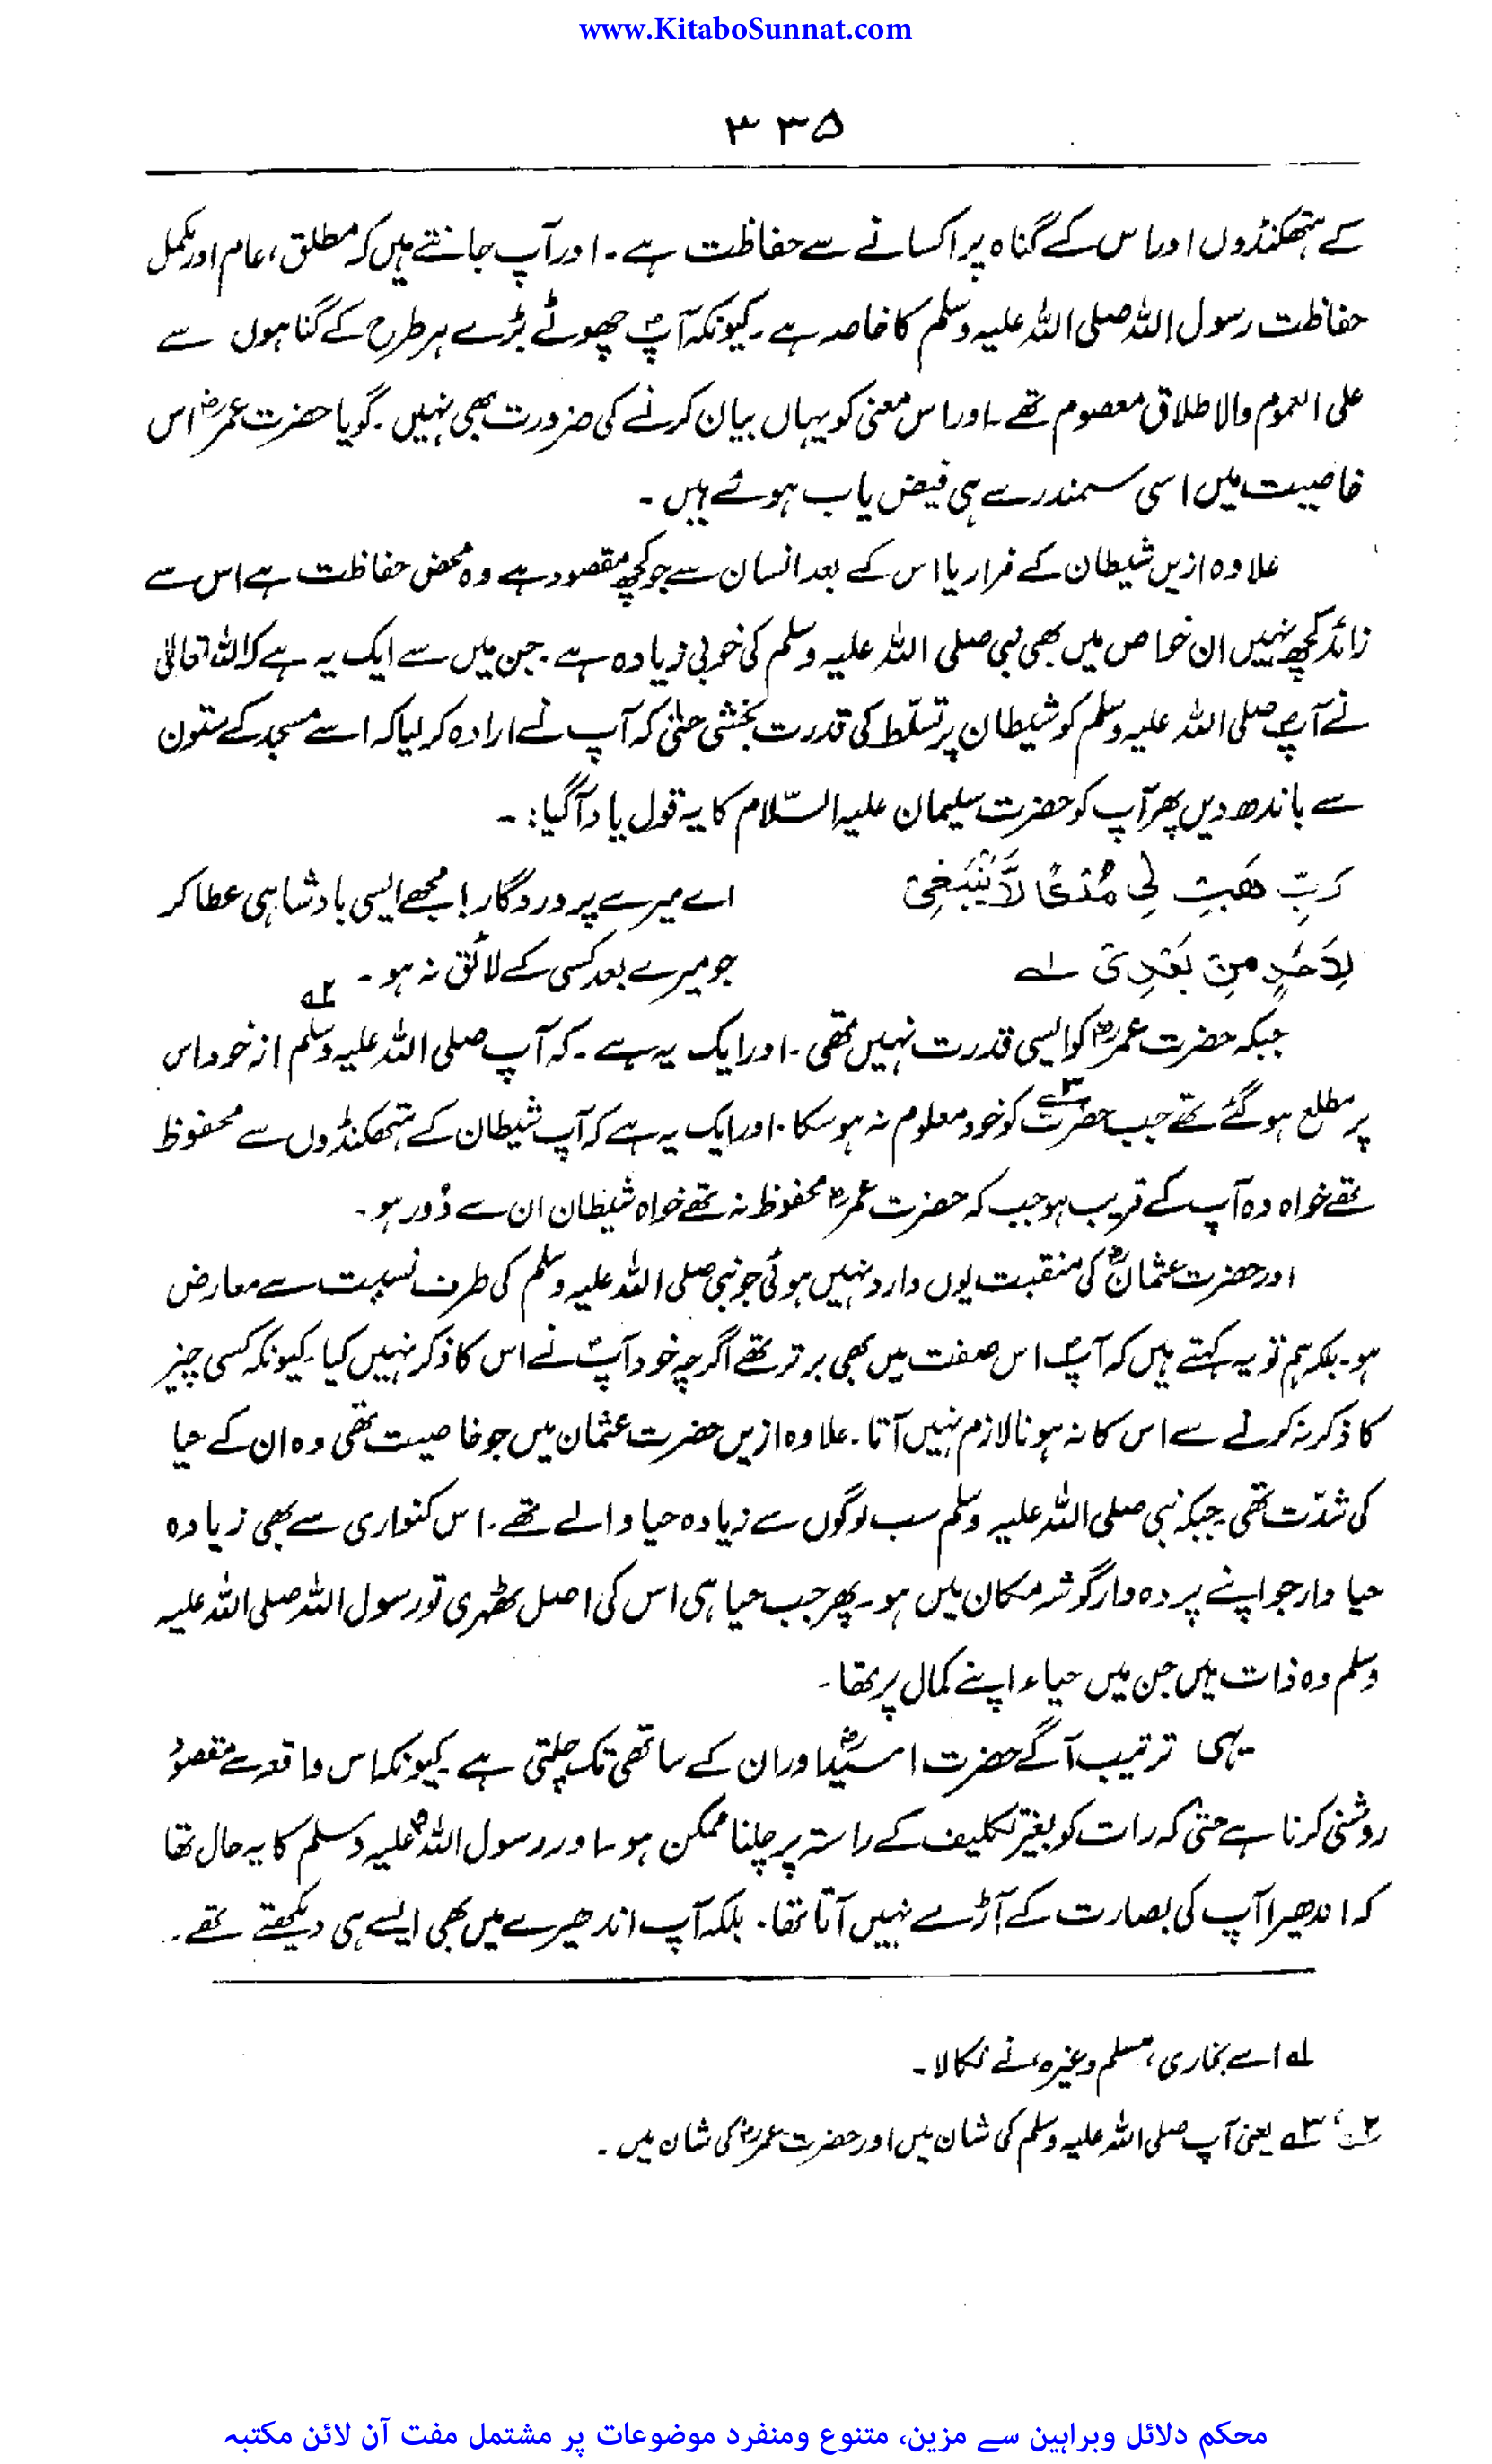 www.KitaboSunnat.com
۳۳۵
کے ہتھکنڈوں اور اس کے گناہ پر اکسانے سے حفاظت ہے۔ اور آپ جانتے ہیں کہ مطلق، عام اور مکمل
حفاظت رسول اللہ صلی اللہ علیہ وسلم کا خاصہ ہے۔ کیونکہ آپؐ چھوٹے بڑے ہر طرح کے گناہوں سے
علی العموم والاطلاق معصوم تھے۔ اور اس معنی کو یہاں بیان کرنے کی ضرورت بھی نہیں۔ گویا حضرت عمرؓ اس
خاصیت میں اسی سمندر سے ہی فیض یاب ہوئے ہیں۔
علاوہ ازیں شیطان کے فرار یا اس کے بعد انسان سے جو کچھ مقصود ہے وہ محض حفاظت ہے اس سے
زائد کچھ نہیں ان خواص میں بھی نبی صلی اللہ علیہ وسلم کی خوبی زیادہ ہے۔ جن میں سے ایک یہ ہے کہ اللہ تعالیٰ
نے آپ صلی اللہ علیہ وسلم کو شیطان پر تسلّط کی قدرت بخشی حتیٰ کہ آپ نے ارادہ کر لیا کہ اسے مسجد کے ستون
سے باندھ دیں پھر آپ کو حضرت سلیمان علیہ السّلام کا یہ قول یاد آگیا:۔
رَبِّ هَبْ لِي مُلْكًا لَّا يَنْبَغِيْ اے میرے پروردگار! مجھے ایسی بادشاہی عطا کر
لِاَحَدٍ مِنْ بَعْدِيْ ۱؎ جو میرے بعد کسی کے لائق نہ ہو۔ ۲؎
جبکہ حضرت عمرؓ کو ایسی قدرت نہیں تھی۔ اور ایک یہ ہے۔ کہ آپ صلی اللہ علیہ وسلم از خود اس
پر مطلع ہو گئے تھے جب حضرت۳؎ کو خود معلوم نہ ہو سکا۔ اور ایک یہ ہے کہ آپ شیطان کے ہتھکنڈوں سے محفوظ
تھے خواہ وہ آپ کے قریب ہو جب کہ حضرت عمرؓ محفوظ نہ تھے خواہ شیطان ان سے دُور ہو۔
اور حضرت عثمانؓ کی منقبت یوں وارد نہیں ہوئی جو نبی صلی اللہ علیہ وسلم کی طرف نسبت سے معارض
ہو۔ بلکہ ہم تو یہ کہتے ہیں کہ آپؐ اس صفت میں بھی برتر تھے اگرچہ خود آپؐ نے اس کا ذکر نہیں کیا۔ کیونکہ کسی چیز
کا ذکر نہ کرنے سے اس کا نہ ہونا لازم نہیں آتا۔ علاوہ ازیں حضرت عثمان میں جو خاصیت تھی وہ ان کے حیا
کی شدّت تھی۔ جبکہ نبی صلی اللہ علیہ وسلم سب لوگوں سے زیادہ حیا والے تھے۔ اس کنواری سے بھی زیادہ
حیا دار جو اپنے پردہ دار گوشہ مکان میں ہو۔ پھر جب حیا ہی اس کی اصل ٹھہری تو رسول اللہ صلی اللہ علیہ
وسلم وہ ذات ہیں جن میں حیاء اپنے کمال پر تھا۔
یہی ترتیب آگے حضرت اسیدؓ اور ان کے ساتھی تک چلتی ہے۔ کیونکہ اس واقعہ سے مقصود
روشنی کرنا ہے حتیٰ کہ رات کو بغیر تکلیف کے راستہ پر چلنا ممکن ہو۔ اور رسول اللہ صلی علیہ وسلم کا یہ حال تھا
کہ اندھیرا آپ کی بصارت کے آڑے نہیں آتا تھا۔ بلکہ آپ اندھیرے میں بھی ایسے ہی دیکھتے تھے۔
۱؎ اسے بخاری، مسلم وغیرہ نے نکالا۔
۲؎، ۳؎ یعنی آپ صلی اللہ علیہ وسلم کی شان میں اور حضرت عمرؓ کی شان میں۔
محکم دلائل وبراہین سے مزین، متنوع ومنفرد موضوعات پر مشتمل مفت آن لائن مکتبہ